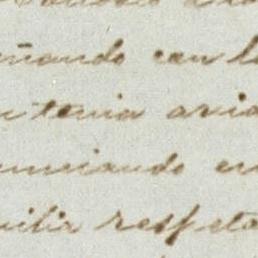 ñando con l
tenia aria
unciando en
milia respeta